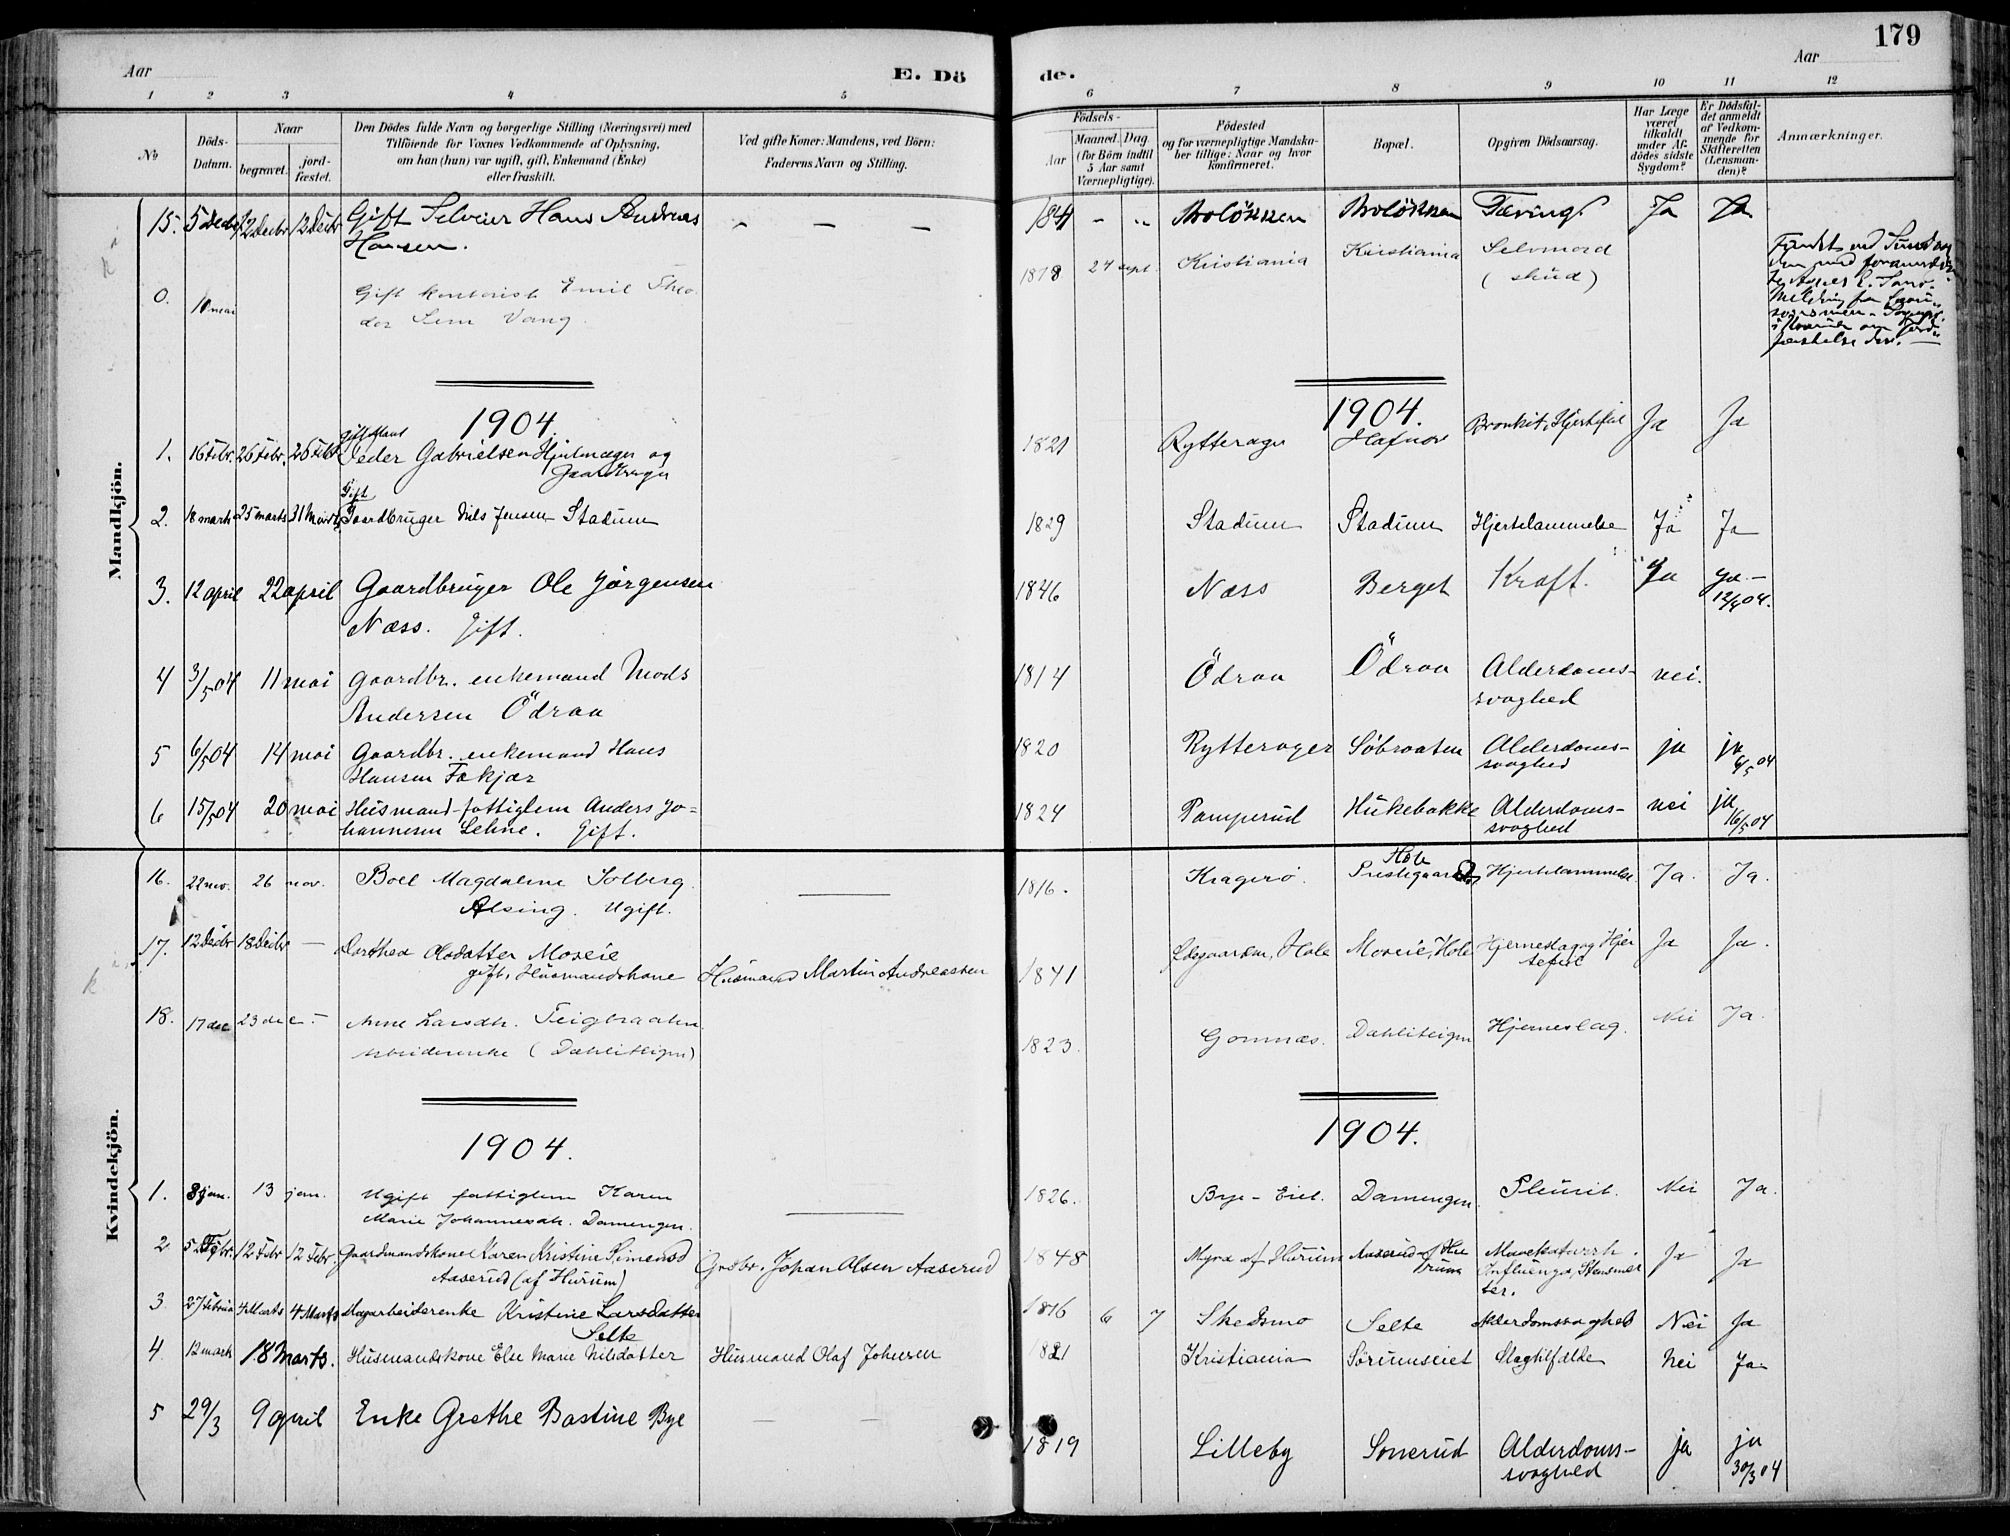 179
Aar
E. Dö
de.
Aar
1 2 3 4 5
6 7 8 9 10 11 12
No
Döds-
Datum.
Naar
begravet.
jord-
fæstet.
Den Dödes fulde Navn og borgerlige Stilling (Næringsvei) med
Tilföiende for Voxnes Vedkommende af Oplysning,
om han (hun) var ugift, gift, Enkemand (Enke)
eller fraskilt.
Ved gifte Koner: Mandens, ved Börn:
Faderens Navn og Stilling.
Födsels-
Aar
Maaned. Dag.
(for Börn indtil
5 Aar samt
Værnepligtige).
Födested
og for værnepligtige Mandska-
ber tillige: Naar og hvor
konfirmeret.
Bopæl.
Opgiven Dödsaarsag.
Har Læge
været
tilkaldt
under Af-
dödes sidste
Sygdom?
Er Dödsfal-
det anmeldt
af Vedkom-
mende for
Skifteretten
(Lensman-
den)?
Anmærkninger.
Mandkjön.
15. 5 Decbr 12 Decbr 12 Decbr Gift Selveier Hans Andreas
Hansen.
1841 Moløkken Moløkken Tæring Ja Ja
0. 10 mai Gift kontorist Emil Theo-
dor Sem Vang.
1878 24 sept. Kristiania Kristiania Selvmord
(skud)
1904.
1904.
1. 16 Febr. 26 Febr. 26 Febr Gift Mand
Peder Gabrielsen Hjulmager og
Gaardbruger
1821 Rytterager Hafnor Bronkit, Hjertefeil Ja Ja
2. 18 marts 25 marts 31 Marts Gift
Gaardbruger Nils Jensen Stadum
1829 Stadum Stadum Hjertelammelse Ja Ja
3. 12 april 22 april Gaardbruger Ole Jørgensen
Næss. Gift.
1846 Næss Berget Kræft. Ja Ja
12/4 04.
4 3/5 04 11 mai Gaardbr. enkemand Mads
Andersen Ödraa
1814 Ödraa Ödraa Alderdoms-
svaghed nei.
5 6/5 04 14 mai Gaardbr. enkemand Hans
Hansen Fækjær
1820 Rytterager Søbraaten Alderdoms-
svaghed ja ja
6/5 04
6 15/5 04 20 mai Husmand fattiglem Anders Jo-
hannesen Lehne. Gift.
1824 Pamperud Hukebakke Alderdoms-
svaghed nei ja
16/5 04
Kvindekjön.
16. 22 nov. 26 nov. Boel Magdalene Solberg
Alsing. Ugift.
1816. Kragerø. Hole
Prestegaard Hjertelammelse. Ja. Ja.
17. 12 Decbr 18 Decbr Dorthea Olsdatter Moseie
gift, Husmandskone Husmand Martin Andreassen
1841 Hole Moseie, Hole Hjerneslag og Hjer
tefeil Ja Ja.
18. 17 dec 23 dec. Anne Larsdtr. Teigbraaten
Arbeiderenke (Dahlitteigen)
1823. Gomnæs. Dahlitteigen Hjerneslag. Nei Ja.
1904.
1904.
1. 8 jan. 13 jan. Ugift fattiglem Karen
Marie Johannesdtr. Damengen.
1826. Bye-Eiet. Damengen Pleurit. Nei Ja.
2 5 Febr. 12 Febr 12 Febr. Gaardmandskone Karen Kristine Simensd
Aaserud (af Hurum) Grdbr. Johan Olsen Aaserud
1848 Myra af Hurum Aaserud af Hu
rum Mavekatarrh.
Influenza, Ja Ja
3 27 Februar 4 Marts 4 Marts Dagarbeiderenke Kristine Larsdatter
Selte
1816 6 7 Skedsmo Selte Alderdomssvaghed Nei Ja
4. 12 marts 18 Marts. Husmandskone Else Marie Nilsdatter Husmand Olaf Johnsen
1821 Kristiania Sørumseiet Slagtilfælde Nei Ja
5 29/3 9 april Enke Grethe Bastine Bye
1819 Lilleby Sonerud Alderdoms-
svaghed ja ja
30/3 04